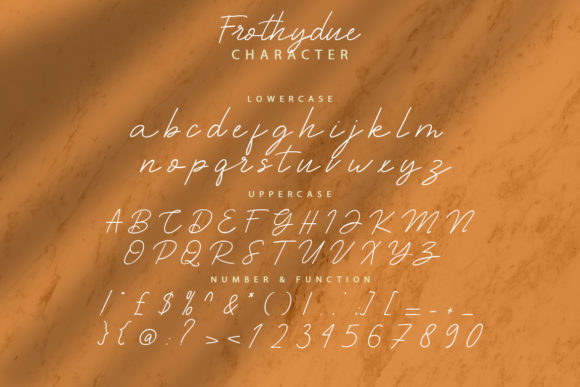 Frothydue
CHARACTER
LOWERCASE
a b c d e f g h i j k l m
n o p q r s t u v w x y z
UPPERCASE
A B C D E F G H I J K M N
O P Q R S T U V W X Y Z
NUMBER & FUNCTION
| " £ $ % ^ & * ( ) | . ' . ] [ = _ - + _
} { @ : ? > < 1 2 3 4 5 6 7 8 9 0